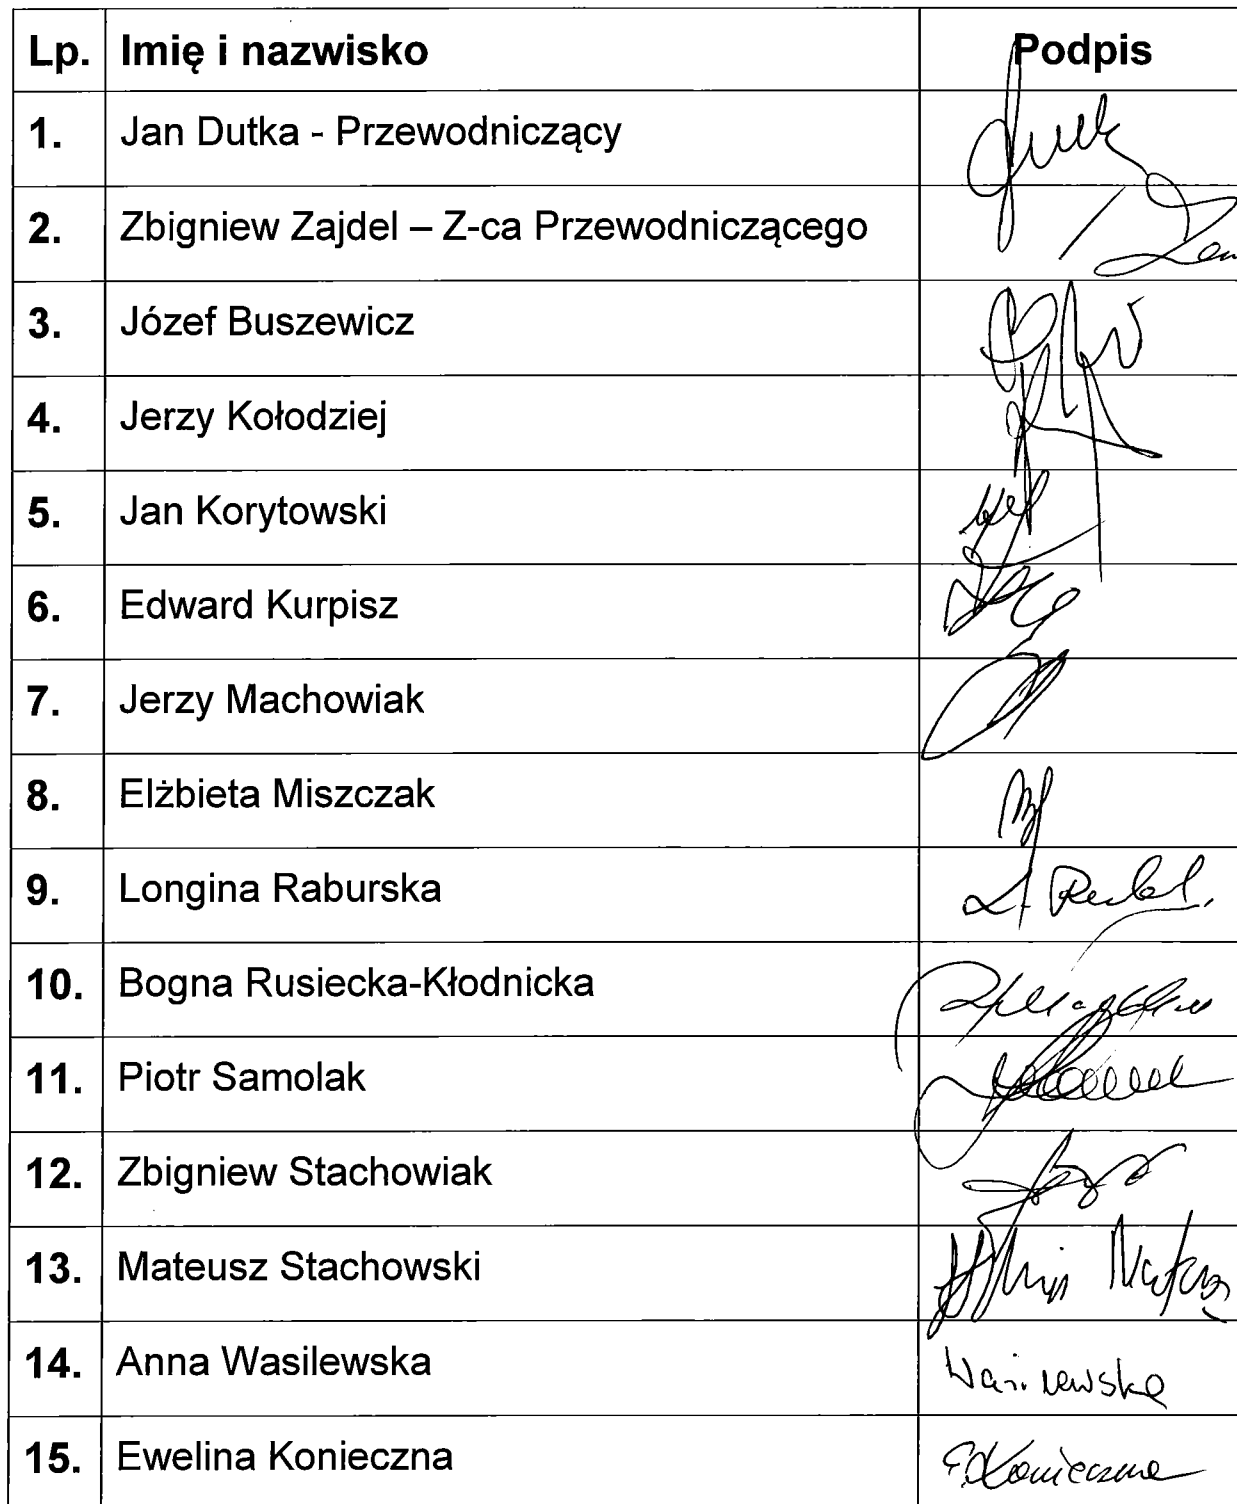 Lp. Imię i nazwisko Podpis
1. Jan Dutka - Przewodniczący
2. Zbigniew Zajdel – Z-ca Przewodniczącego
3. Józef Buszewicz
4. Jerzy Kołodziej
5. Jan Korytowski
6. Edward Kurpisz
7. Jerzy Machowiak
8. Elżbieta Miszczak
9. Longina Raburska
10. Bogna Rusiecka-Kłodnicka
11. Piotr Samolak
12. Zbigniew Stachowiak
13. Mateusz Stachowski
14. Anna Wasilewska Wasilewska
15. Ewelina Konieczna E.Konieczna